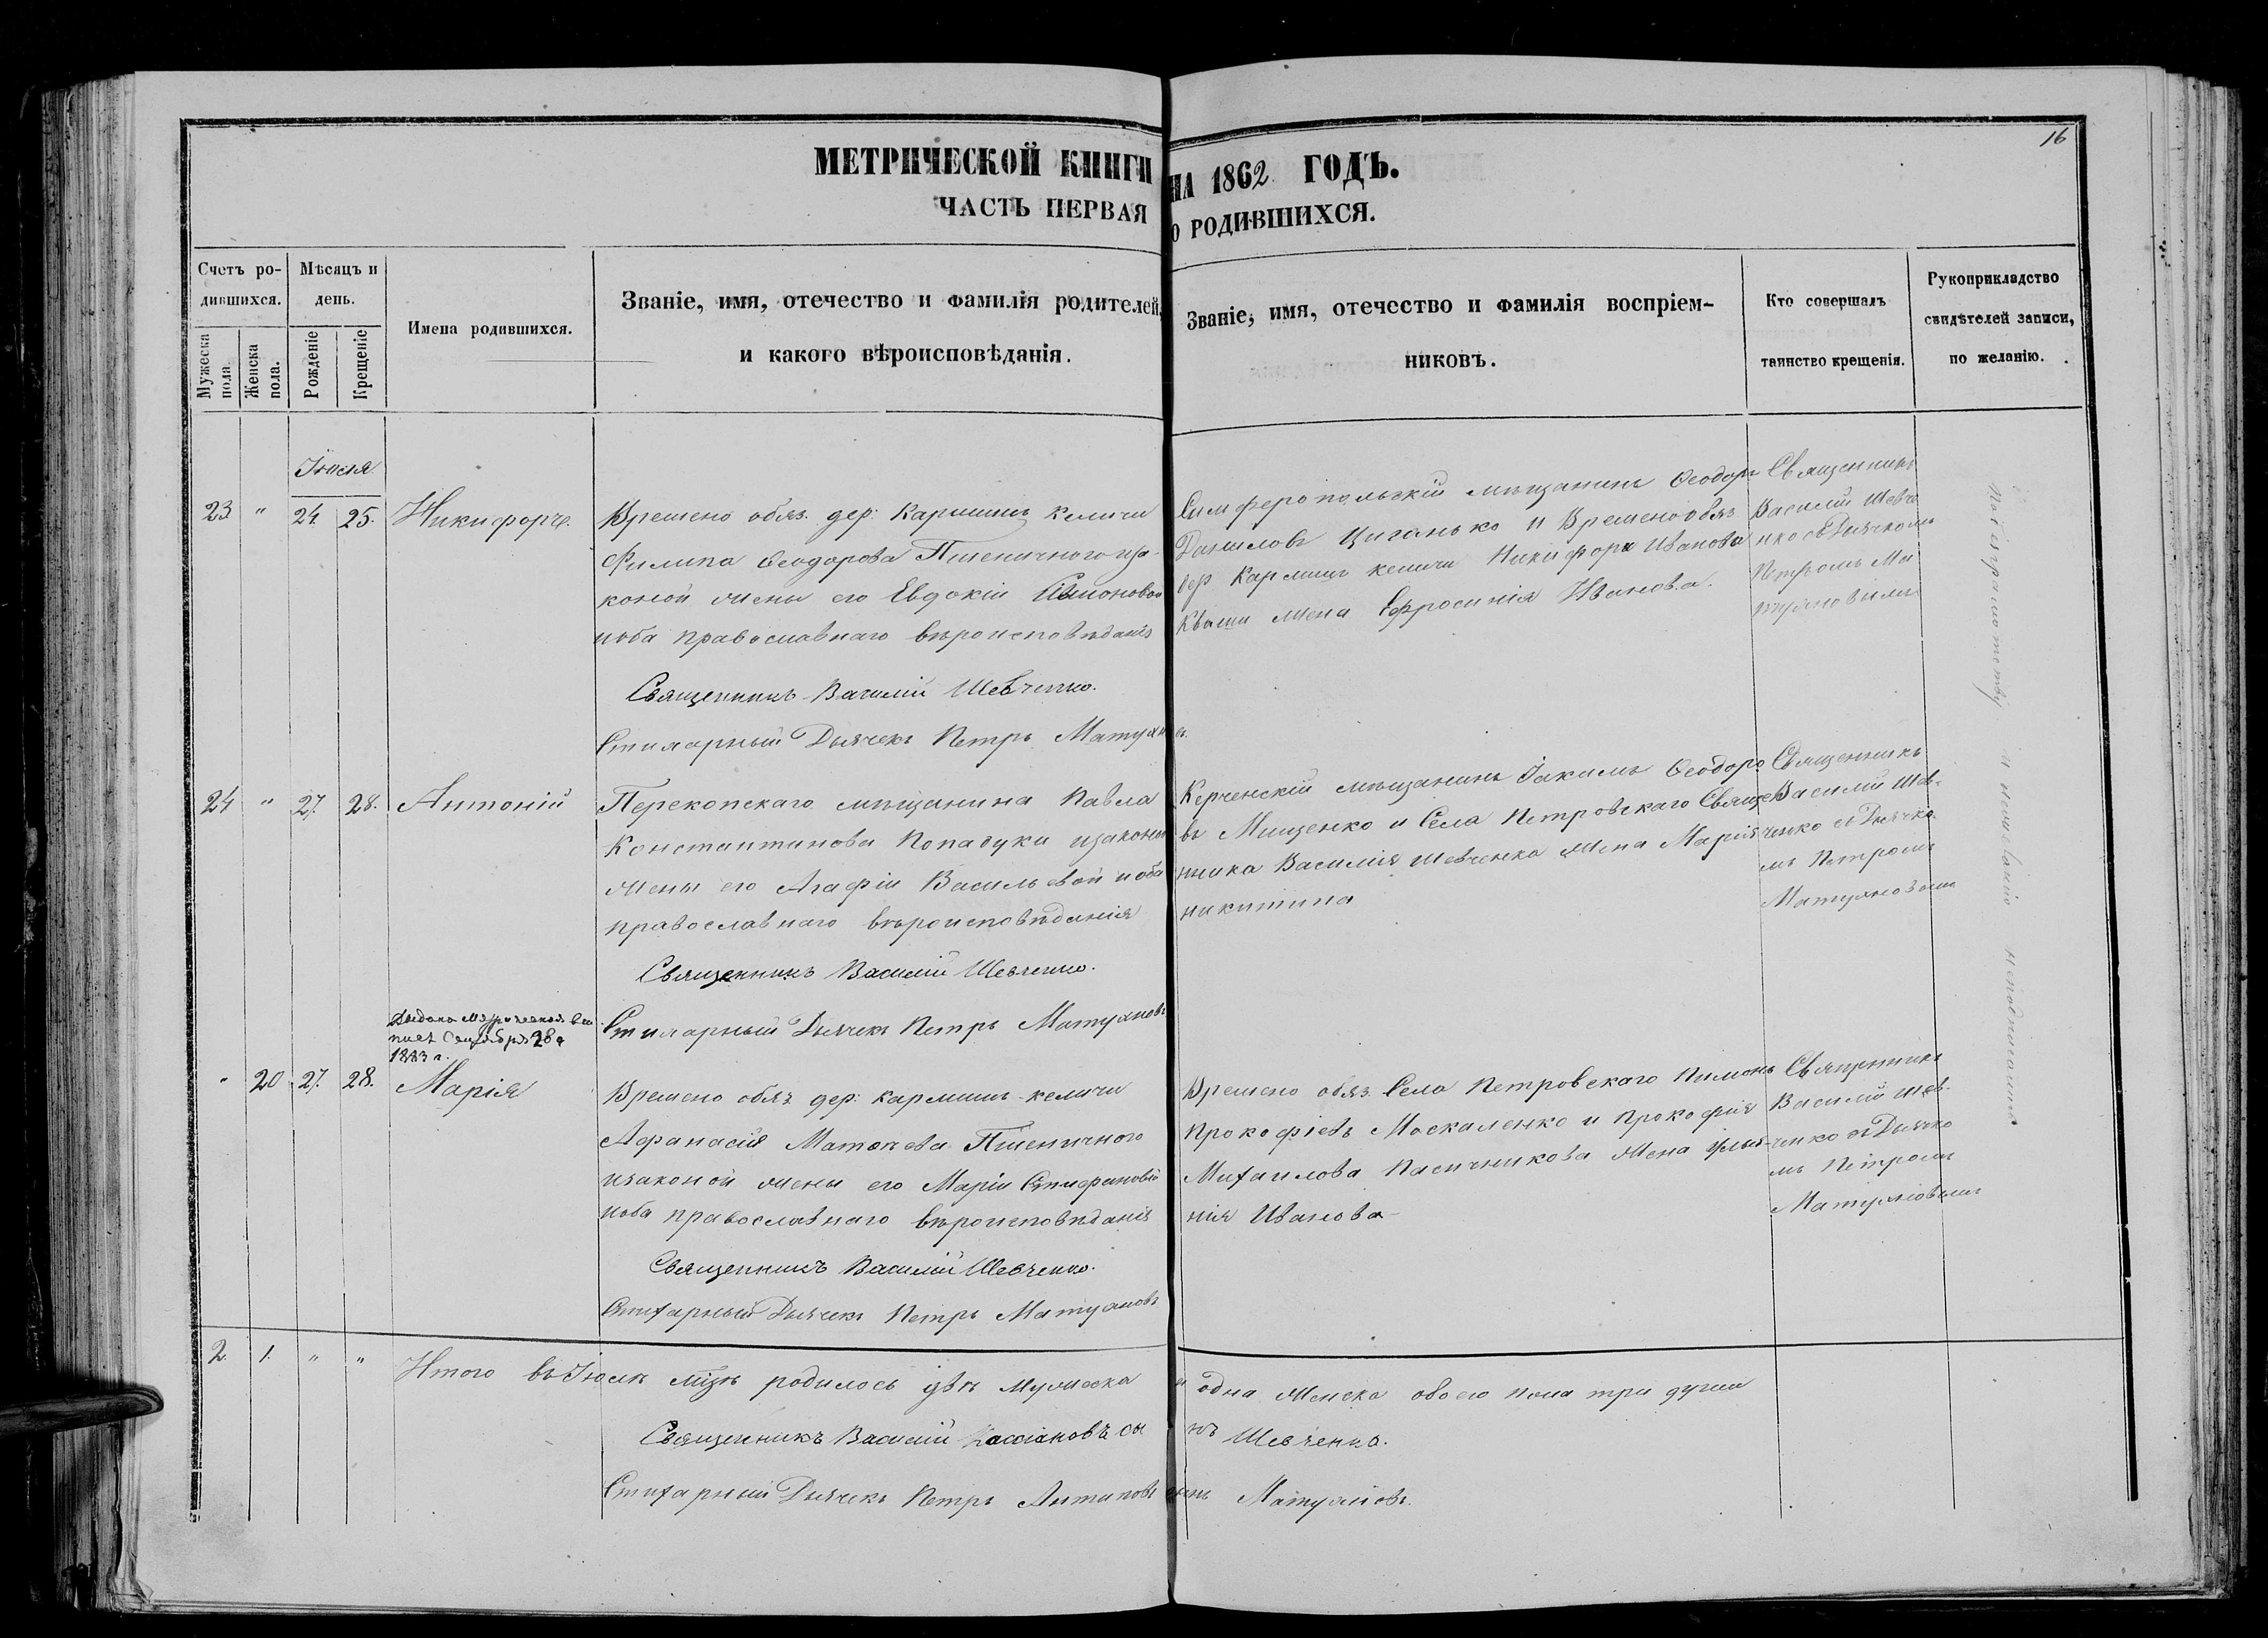 16
МЕТРИЧЕСКОЙ КНИГИ НА 1862 ГОДЪ.
ЧАСТЬ ПЕРВАЯ О РОДИВШИХСЯ.
Счетъ ро-
дившихся.
Мужеска пола.
Женска пола.
Мѣсяцъ и
день.
Рожденіе
Крещеніе
Имена родившихся.
Званіе, имя, отечество и фамилія родителей,
и какого вѣроисповѣданія.
Званіе, имя, отечество и фамилія воспріем-
никовъ.
Кто совершалъ
таинство крещенія.
Рукоприкладство
свидѣтелей записи,
по желанію.
Іюля
23 " 24. 25. Никифоръ.
Времено обяз. дер: Кармишъ Келичи
Филипа Ѳеодорова Пшеничного иза-
коной жены его Евдокіи Симоновой
иоба православнаго вѣроисповѣданія
Священникъ Василій Шевченко.
Стихарный Дьячекъ Петръ Матуяновъ
Симферопольскій мѣщанинъ Ѳеодоръ
Даниловъ Циганько и Временообяз
дер Кармишъ келичи Никифора Иванова
Кваши жена Ефросинія Иванова.
Священникъ
Василій Шевче
нко съ Дьячкомъ
Петромъ Ма
туяновымъ
24 " 27. 28. Антоній
Перекопскаго мѣщанина Павла
Константинова Попадуки изаконой
жены его Агафіи Васильевой иоба
православнаго вѣроисповѣданія
Священникъ Василій Шевченко.
Стихарный Дьячекъ Петръ Матуяновъ
Керченскій мѣщанинъ Іакимъ Ѳеодоро
въ Мищенко и Села Петровскаго Свяще
нника Василія Шевченка жена Марія
никитина
Священникъ
Василій Шев-
ченко съ Дьячко
мъ Петромъ
Матуяновымъ
Выдана метрическая вы
пись Сентября 28 д
1883 г.
" 20 27. 28. Марія
Времено обяз дер: кармишъ-келичи
Афанасія Матвѣева Пшеничного
изаконой жены его Маріи Стефановой
иоба православнаго вѣроисповѣданія
Священникъ Василій Шевченко.
Стихарный Дьячекъ Петръ Матуяновъ
Времено обяз. Села Петровскаго Пимонъ
Прокофіевъ Москаленко и Прокофія
Михаилова Пасичникова жена Улья-
нія Иванова
Священникъ
Василій Шев-
ченко съ Дьячко
мъ Петромъ
Матуяновымъ
2. 1. " " Итого въ Іюлѣ мѣсяцѣ родилось двѣ мужеска и одна женска обоего пола три души
Священникъ Василій Кассіановъ сынъ Шевченко.
Стихарный Дьячекъ Петръ Антиповъ сынъ Матуяновъ.